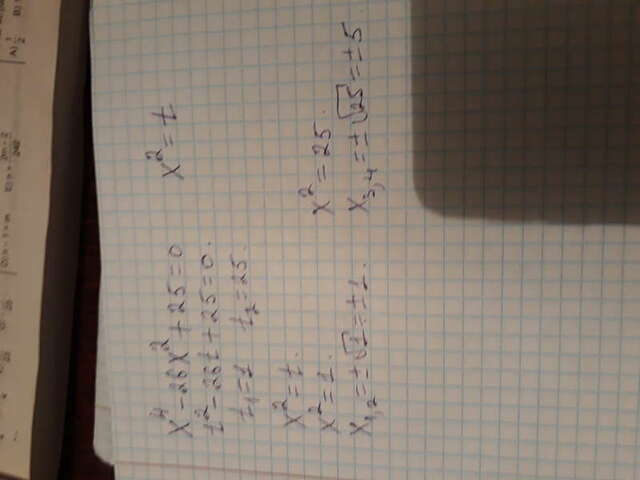 D) n - 1 = m
x⁴ - 26x² + 25 = 0 x² = t
t² - 26t + 25 = 0.
t₁ = 1 t₂ = 25.
x² = t.
x² = 1. x² = 25.
x₁,₂ = ±√1 = ±1. x₃,₄ = ±√25 = ±5.